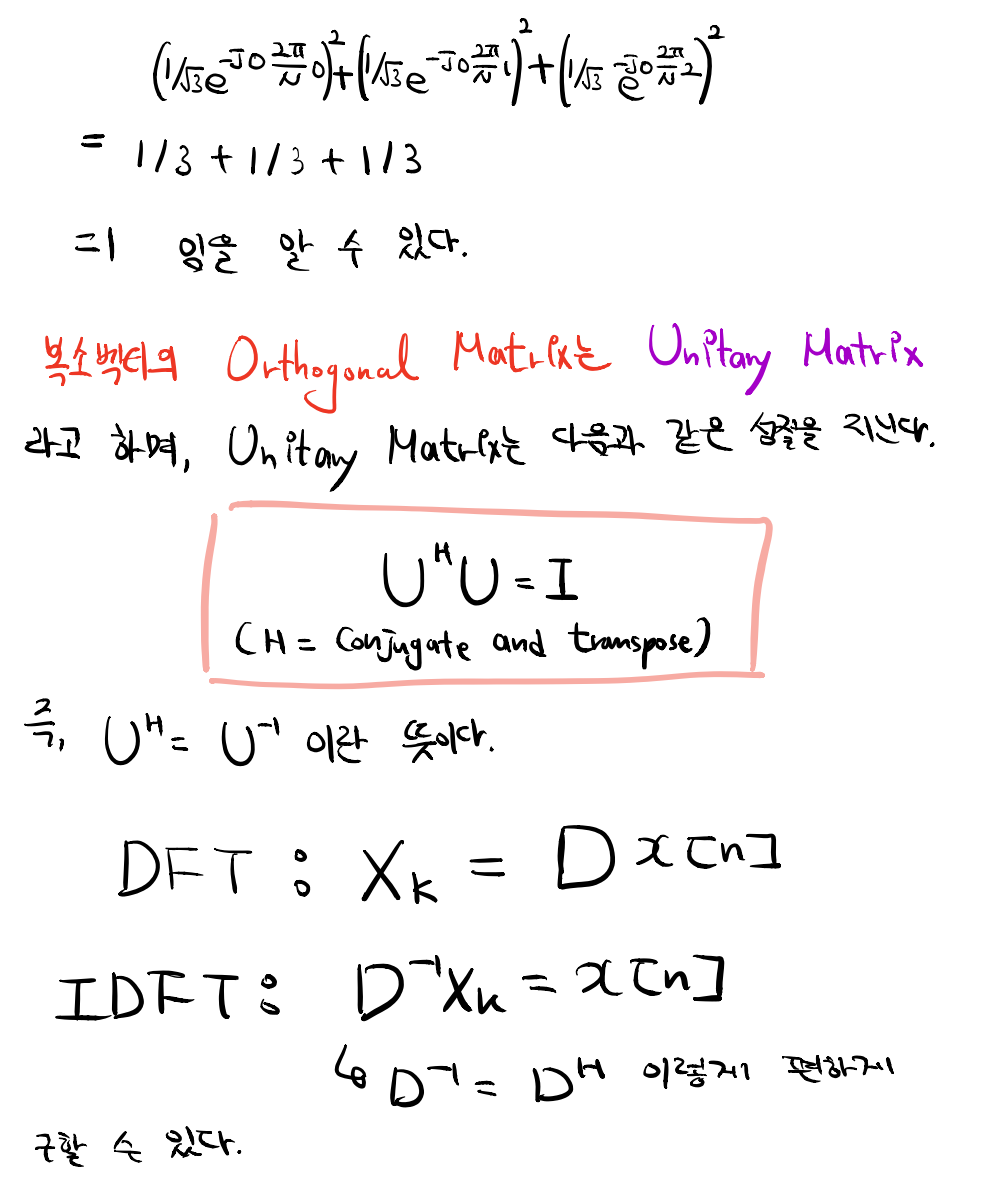 (1/√3 e^{-j0 2π/N 0})^2 + (1/√3 e^{-j0 2π/N 1})^2 + (1/√3 e^{-j0 2π/N 2})^2
= 1/3 + 1/3 + 1/3
=1 임을 알 수 있다.
복소벡터의 Orthogonal Matrix는 Unitary Matrix
라고 하며, Unitary Matrix는 다음과 같은 성질을 지닌다.
U^H U = I
(H = Conjugate and transpose)
즉, U^H = U^{-1} 이란 뜻이다.
DFT : X_k = D x[n]
IDFT : D^{-1}X_k = x[n]
↳ D^{-1} = D^H 이렇게 편하게
구할 수 있다.